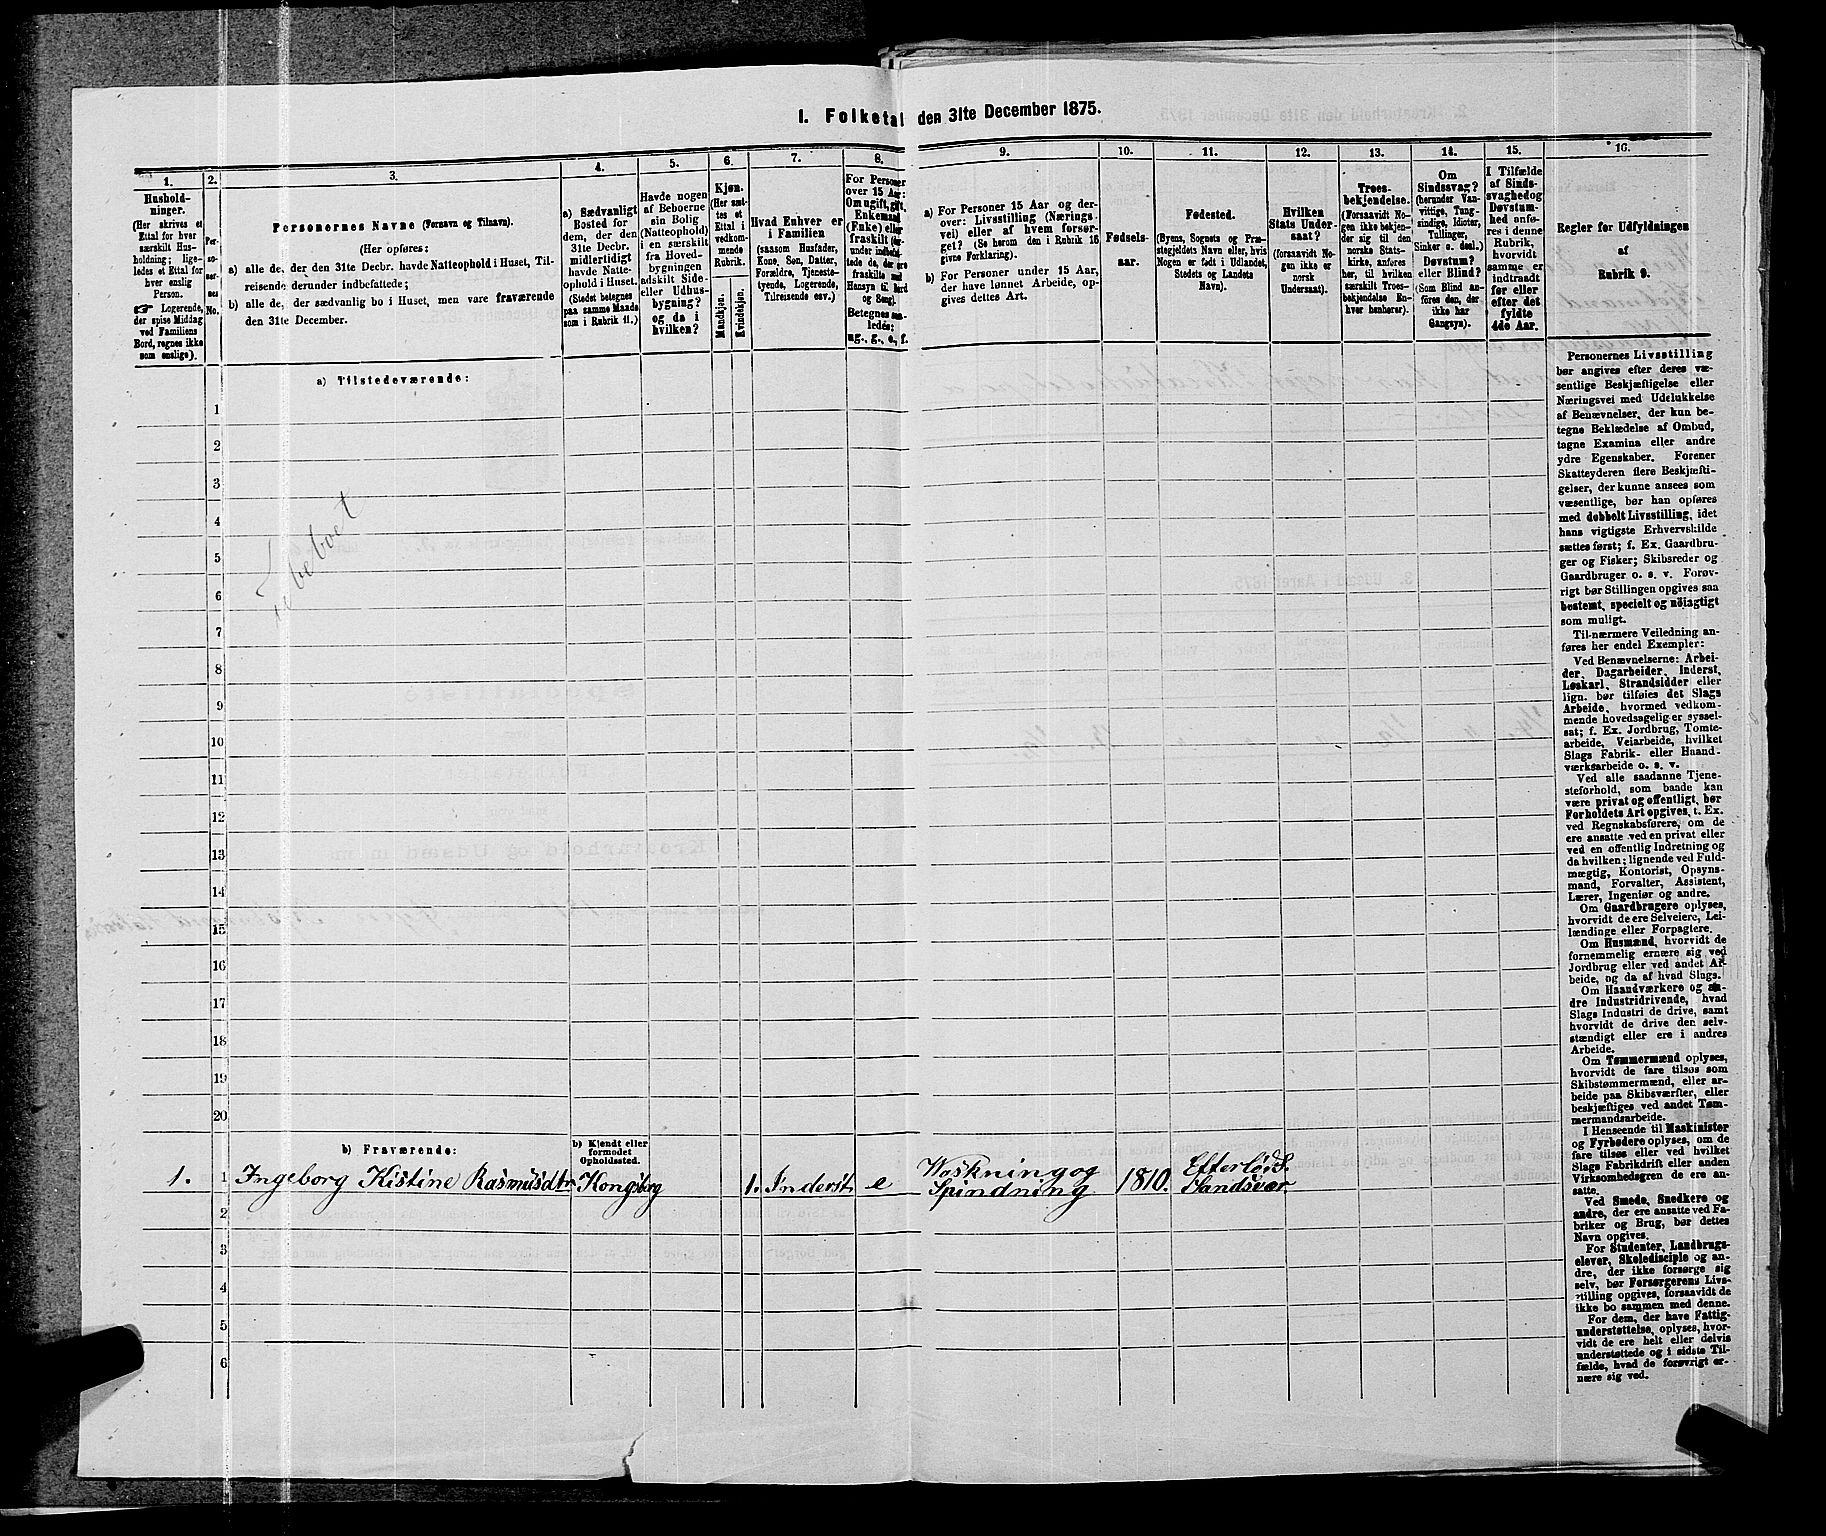 1. Folketal den 31te December 1875.
1.
Hushold-
ninger.
(Her skrives et
Ettal for hver
særskilt Hus-
holdning; lige-
ledes et Ettal for
hver enslig
Person.
☞ Logerende,
der spise Middag
ved Familiens
Bord, regnes ikke
som enslige).
2.
Per-
so-
ner-
nes
No.
3.
Personernes Navne (Fornavn og Tilnavn).
(Her opføres:
a) alle de, der den 31te Decbr. havde Natteophold i Huset, Til-
reisende derunder indbefattede;
b) alle de, der sædvanlig bo i Huset, men vare fraværende
den 31te December.
4.
a) Sædvanligt
Bosted for
dem, der den
31te Decbr.
midlertidigt
havde Natte-
ophold i Huset.
(Stedet betegnes
paa samme Maade
som i Rubrik 11.)
5.
Havde nogen
af Beboerne
sin Bolig
(Natteophold)
i en særskilt
fra Hoved-
bygningen
adskilt Side-
eller Udhus-
bygning?
og da i
hvilken?
6.
Kjøn.
(Her sæt-
tes et
Ettal i
vedkom-
mende
Rubrik.
Mandkjøn.
Kvindekjøn.
7.
Hvad Enhver er
i Familien
(saasom Husfader,
Kone, Søn, Datter,
Forældre, Tjeneste-
tyende, Logerende,
Tilreisende osv.)
8.
For Personer
over 15 Aar:
Om ugift, gift,
Enkemand
(Enke) eller
fraskilt
Betegnes saa-
ledes:
ug., g., e., f.
9.
a) For Personer 15 Aar og der-
over: Livsstilling (Nærings-
vei) eller af hvem forsør-
get? (Se herom den i Rubrik 16
givne Forklaring).
b) For Personer under 15 Aar,
der have lønnet Arbeide, op-
gives dettes Art.
10.
Fødsels-
aar.
11.
Fødested.
(Byens, Sognets og Præ-
stegjeldets Navn eller, hvis
Nogen er født i Udlandet,
Stedets og Landets
Navn).
12.
Hvilken
Stats Under-
saat?
(forsaavidt No-
gen ikke er
norsk
Undersaat).
13.
Troes-
bekjendelse.
(Forsaavidt No-
gen ikke bekjen-
der sig til den
norske Stats-
kirke, anføres
her, til hvilken
særskilt Troes-
bekjendelse En-
hver henhører).
14.
Om
Sindssvag?
(herunder Van-
vittige, Tung-
sindige, Idioter,
Tullinger,
Sinker o. desl.)
Døvstum?
eller Blind?
(Som Blind an-
føres den, der
ikke har
Gangsyn).
15.
I Tilfælde
af Sinds-
svaghed og
Døvstum-
hed anfø-
res i denne
Rubrik,
hvorvidt
samme er
indtraadt
før eller
efter det
fyldte
4de Aar.
16.
Regler for Udfyldningen
af
Rubrik 9.
a) Tilstedeværende:
1
2
3
4
5
6
7
8
9
10
11
12
13
14
15
16
17
18
19
20
b) Fraværende:
b) Kjendt eller
formodet
Opholdssted.
1. 1 Ingeborg Kistine Rasmusdtr Kongsberg 1. Inderst e Waskning og Spindning 1810. Efterløds. Sandsvær.
2
3
4
5
6
Personernes Livsstilling
bør angives efter deres væ-
sentlige Beskjæftigelse eller
Næringsvei med Udelukkelse
af Benævnelser, der kun be-
tegne Beklædelse af Ombud,
tagne Examina eller andre
ydre Egenskaber. Forener
Skatteyderen flere Beskjæfti-
gelser, der kunne ansees som
væsentlige, bør han opføres
med dobbelt Livsstilling, idet
hans vigtigste Erhvervskilde
sættes først; f. Ex. Gaardbru-
ger og Fisker; Skibsreder og
Gaardbruger o. s. v. Forøv-
rigt bør Stillingen opgives saa
bestemt, specielt og nøiagtigt
som muligt.
Til nærmere Veiledning an-
føres her endel Exempler:
Ved Benævnelserne: Arbei-
der, Dagarbeider, Inderst,
Løskarl, Strandsidder eller
lign. bør tilføies det Slags
Arbeide, hvormed vedkom-
mende hovedsagelig er syssel-
sat; f. Ex. Jordbrug, Tomte-
arbeide, Veiarbeide, hvilket
Slags Fabrik- eller Haand-
værksarbeide o. s. v.
Ved alle saadanne Tjene-
steforhold, som baade kan
være privat og offentligt, bør
Forholdets Art opgives, t. Ex.
ved Regnskabsførere, om de
ere ansatte ved en privat eller
ved en offentlig Indretning og
da hvilken; lignende ved Fuld-
mægtig, Kontorist, Opsyns-
mand, Forvalter, Assistent,
Lærer, Ingeniør og andre.
Om Gaardbrugere oplyses,
hvorvidt de ere Selveiere, Lei-
lændinge eller Forpagtere.
Om Husmænd, hvorvidt de
fornemmelig ernære sig ved
Jordbrug eller ved andet Ar-
beide, og da af hvad Slags.
Om Haandværkere og an-
dre Industridrivende, hvad
Slags Industri de drive, samt
hvorvidt de drive den selv-
stændigt eller ere i andres
Arbeide.
Om Tømmermænd oplyses,
hvorvidt de fare tilsøs som
Skibstømmermænd, eller ar-
beide paa Skibsværfter, eller
beskjæftiges ved andet Tøm-
mermandsarbeide.
I Henseende til Maskinister
og Fyrbødere oplyses, om de
fare tilsøs eller ved hvilket
Slags Fabrikdrift eller anden
Virksomhedsgren de ere an-
satte.
Ved Smede, Snedkere og
andre, der ere ansatte ved Fa-
briker og Brug, bør dettes
Navn opgives.
For Studenter, Landbrugs-
elever, Skoledisciple og an-
dre, der ikke forsørge sig
selv, bør Forsørgerens Livs-
stilling opgives, forsaavidt de
ikke bo sammen med denne.
For dem, der have Fattig-
understøttelse, oplyses, hvor-
vidt de ere helt eller delvis
understøttede og i sidste Til-
fælde, hvad de forøvrigt er-
nære sig ved.